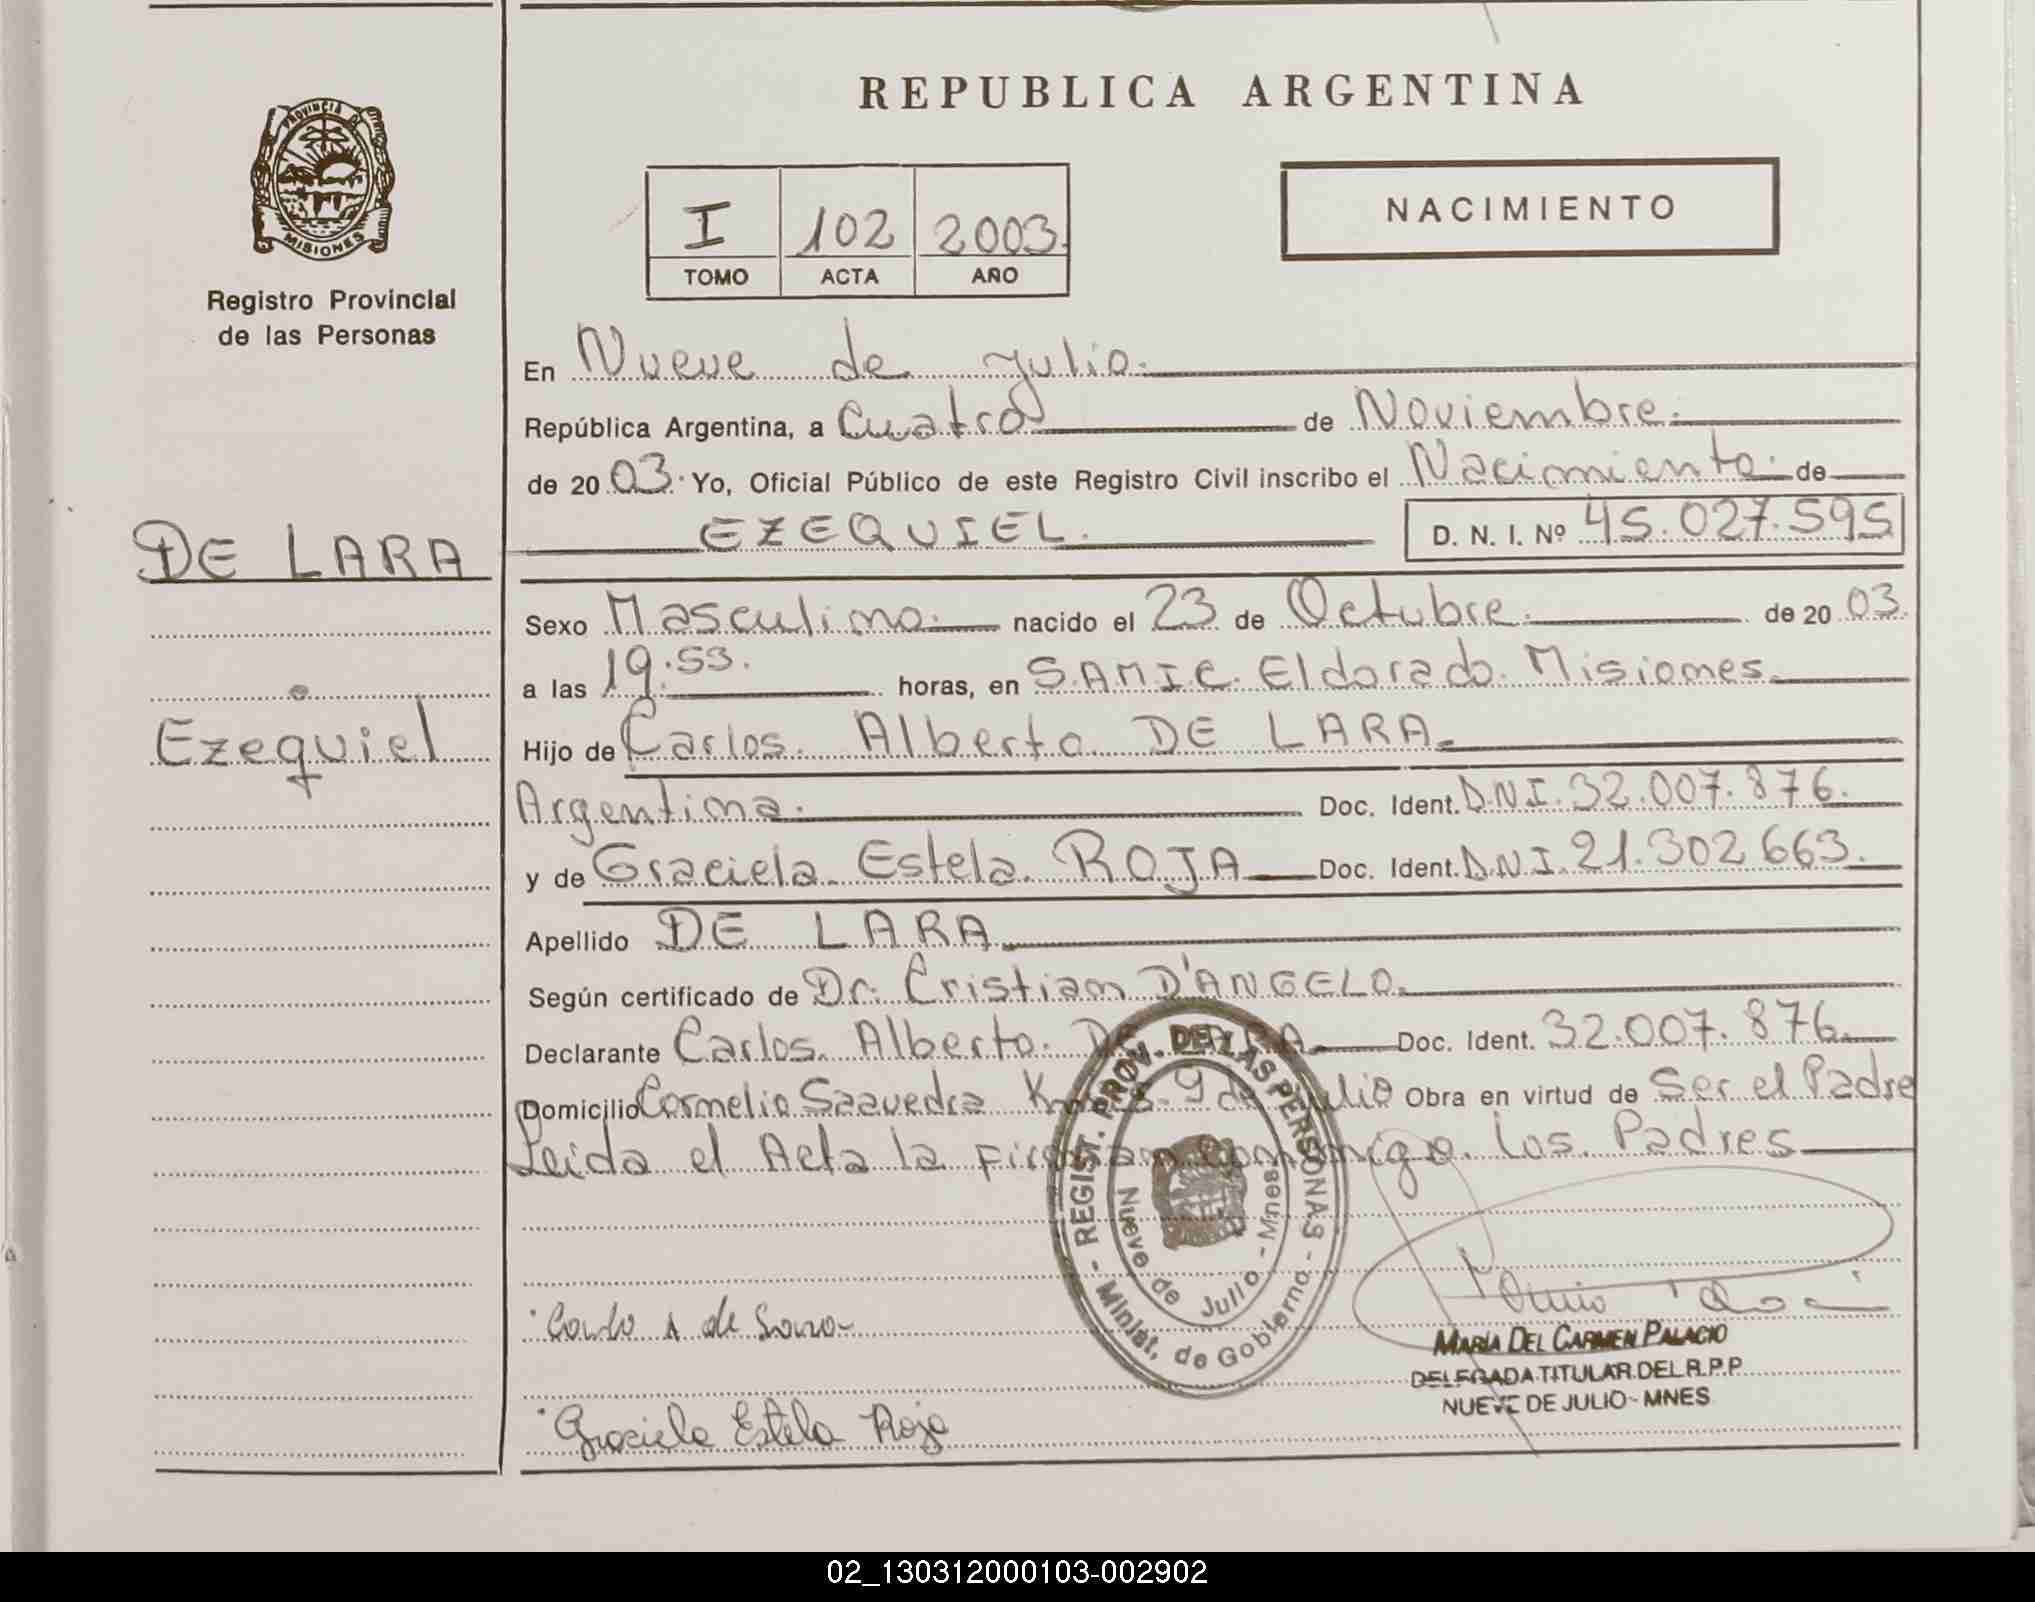 REPUBLICA ARGENTINA
PROVINCIA DE
MISIONES
Registro Provincial
de las Personas
I 102 2003
TOMO ACTA AÑO
NACIMIENTO
En Nueve de Julio.
República Argentina, a Cuatro de Noviembre.
de 20 03. Yo, Oficial Público de este Registro Civil inscribo el Nacimiento. de
EZEQUIEL. D. N. I. Nº 45.027.595
DE LARA
Ezequiel
Sexo Masculino. nacido el 23 de Octubre. de 20 03.
a las 19.53. horas, en S.AMIC. Eldorado. Misiones.
Hijo de Carlos. Alberto DE LARA.
Argentina. Doc. Ident. D.N.I. 32.007.876.
y de Graciela Estela ROJA Doc. Ident. D.N.I. 21.302.663.
Apellido DE LARA
Según certificado de Dr. Cristian D'ANGELO.
Declarante Carlos. Alberto. DE LARA Doc. Ident. 32.007.876.
Domicilio Cornelio Saavedra 9 de Julio Obra en virtud de Ser el Padre
Leida el Acta la firman conmigo los Padres
- REGIST. PROV. DE LAS PERSONAS -
Minist. de Gobierno
Nueve de Julio - Mnes.
Graciela Estela Roja
MARIA DEL CARMEN PALACIO
DELEGADA TITULAR DEL R.P.P.
NUEVE DE JULIO - MNES
02_130312000103-002902